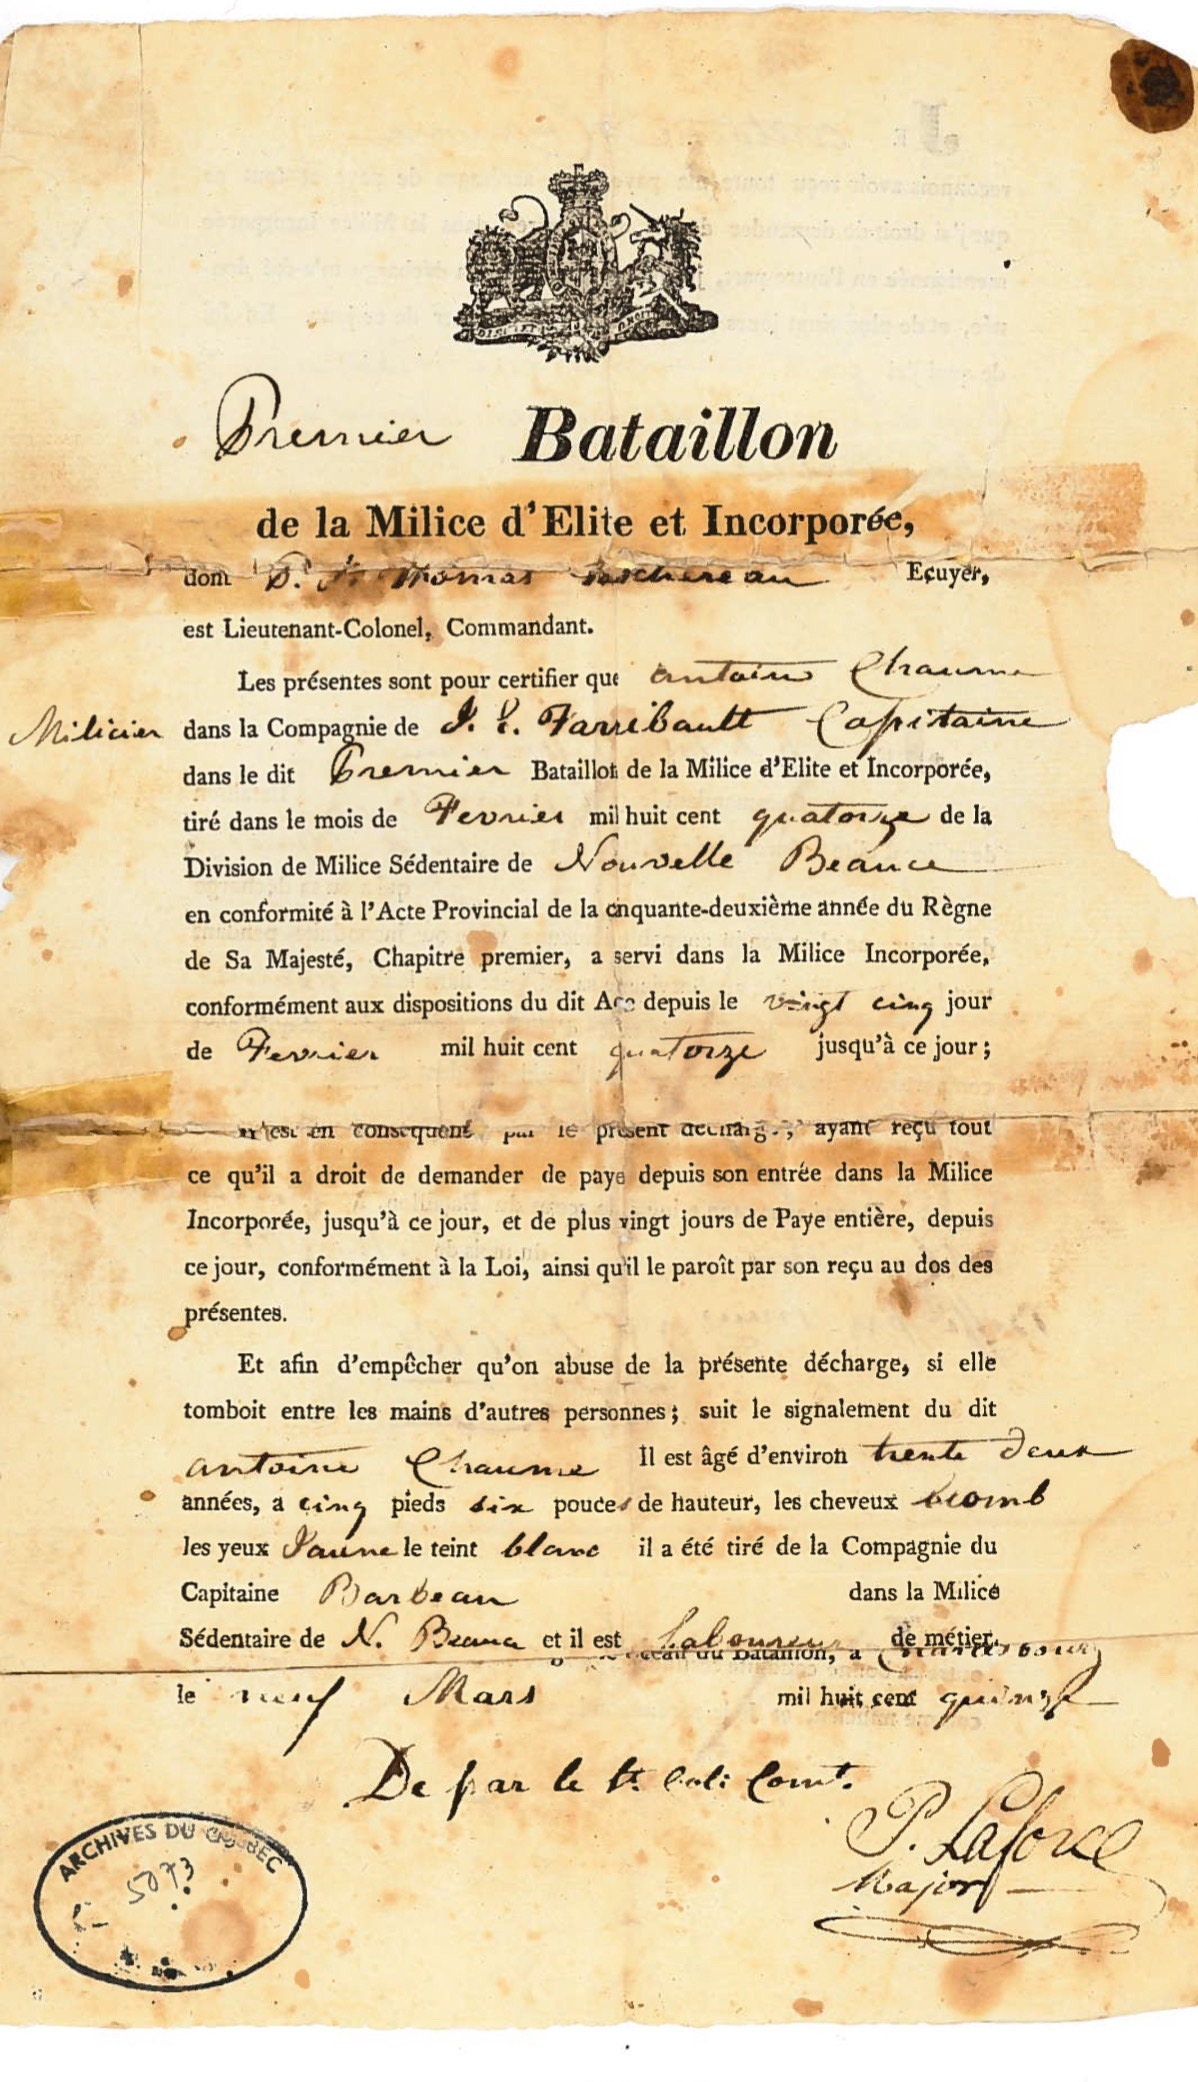 DIEU ET MON DROIT
Premier Bataillon
de la Milice d'Elite et Incorporée,
dont Thomas Taschereau Ecuyer,
est Lieutenant-Colonel, Commandant.
Les présentes sont pour certifier que Antoine Chaume
Milicier dans la Compagnie de J. E. Farribault Capitaine
dans le dit Premier Bataillon de la Milice d'Elite et Incorporée,
tiré dans le mois de Fevrier mil huit cent quatorze de la
Division de Milice Sédentaire de Nouvelle Beauce
en conformité à l'Acte Provincial de la cinquante-deuxième année du Règne
de Sa Majesté, Chapitre premier, a servi dans la Milice Incorporée,
conformément aux dispositions du dit Acte depuis le vingt cinq jour
de Fevrier mil huit cent quatorze jusqu'à ce jour;
n'est en consequent par le présent décharg, ayant reçu tout
ce qu'il a droit de demander de paye depuis son entrée dans la Milice
Incorporée, jusqu'à ce jour, et de plus vingt jours de Paye entière, depuis
ce jour, conformément à la Loi, ainsi qu'il le paroît par son reçu au dos des
présentes.
Et afin d'empêcher qu'on abuse de la présente décharge, si elle
tomboit entre les mains d'autres personnes; suit le signalement du dit
Antoine Chaume Il est âgé d'environ trente deux
années, a cinq pieds six pouces de hauteur, les cheveux blomb
les yeux Jaune le teint blanc il a été tiré de la Compagnie du
Capitaine Barbeau dans la Milice
Sédentaire de N. Beauce et il est Laboureur de métier.
du Bataillon, à
le neuf Mars mil huit cent quinze
De par le Lt. Col: Comt.
P. Laforce
Major
ARCHIVES DU QUÉBEC
5073